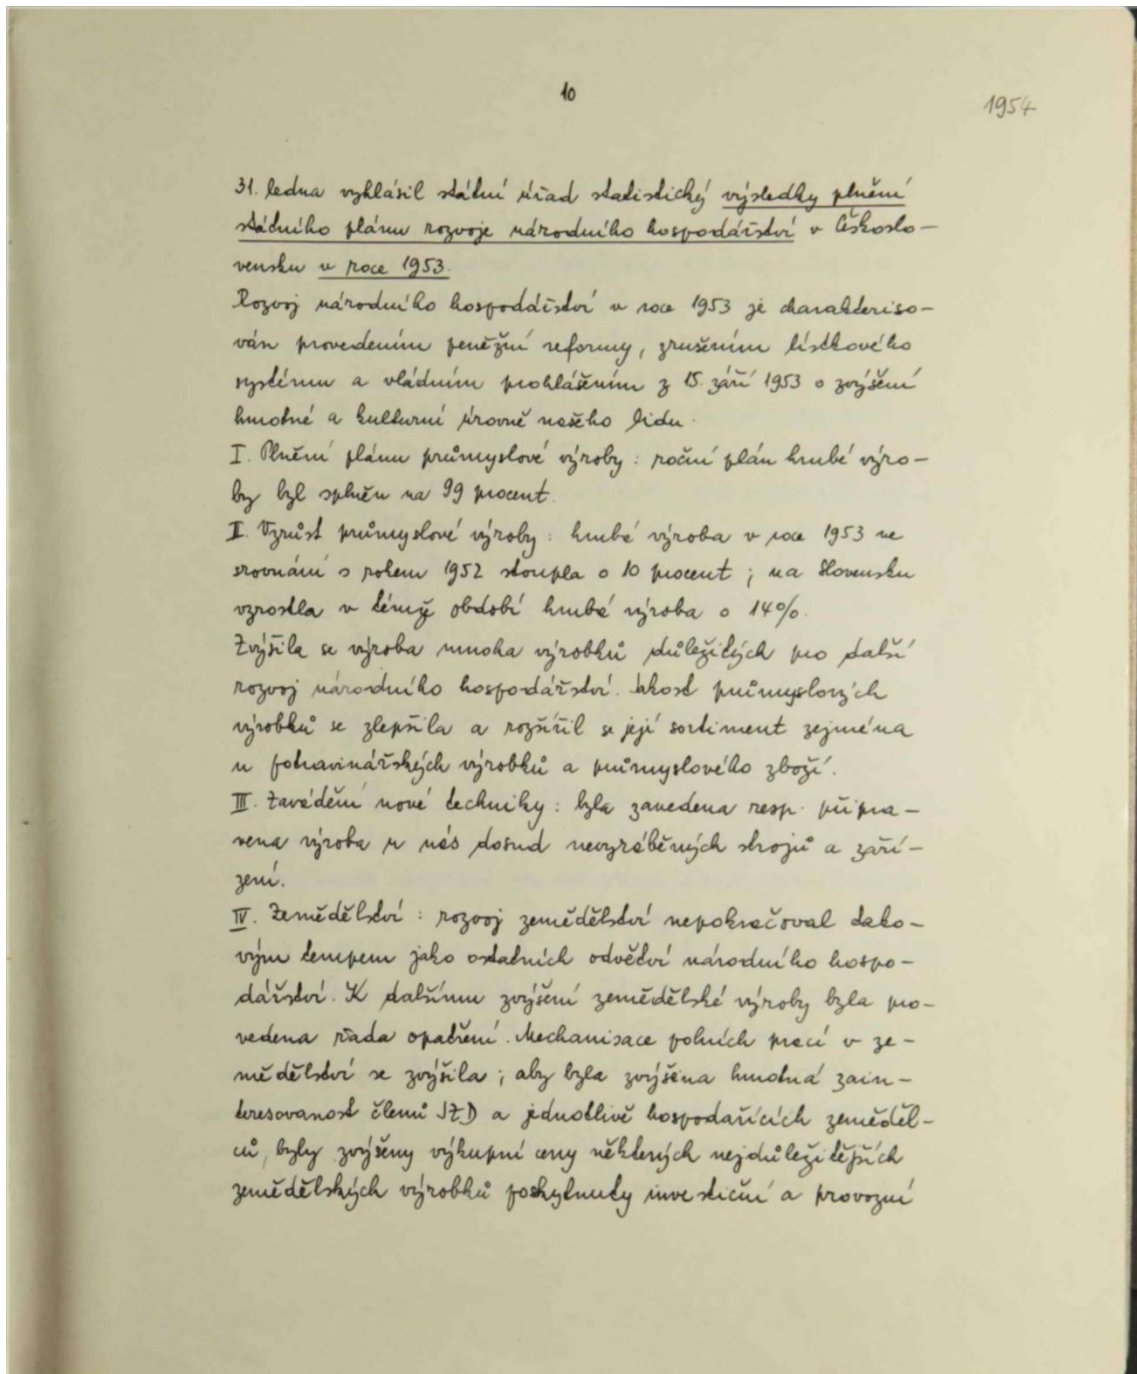 10
1954
31. ledna vyhlásil státní úřad statistický výsledky plnění
státního plánu rozvoje národního hospodářství v Českoslo-
vensku v roce 1953.
Rozvoj národního hospodářství v roce 1953 je charakteriso-
ván provedením peněžní reformy, zrušením lístkového
systému a vládním prohlášením z 15. září 1953 o zvýšení
hmotné a kulturní úrovně našeho lidu.
I. Plnění plánu průmyslové výroby : roční plán hrubé výro-
by byl splněn na 99 procent.
II. Vzrůst průmyslové výroby : hrubá výroba v roce 1953 ve
srovnání s rokem 1952 stoupla o 10 procent ; na Slovensku
vzrostla v témže období hrubá výroba o 14%.
Zvýšila se výroba mnoha výrobků důležitých pro další
rozvoj národního hospodářství. Jakost průmyslových
výrobků se zlepšila a rozšířil se její sortiment zejména
u potravinářských výrobků a průmyslového zboží.
III. Zavádění nové techniky : byla zavedena resp. připra-
vena výroba u nás dosud nevyráběných strojů a zaří-
zení.
IV. Zemědělství : rozvoj zemědělství nepokračoval tako-
vým tempem jako ostatních odvětví národního hospo-
dářství. K dalšímu zvýšení zemědělské výroby byla pro-
vedena řada opatření. Mechanisace polních prací v ze-
mědělství se zvýšila ; aby byla zvýšena hmotná zain-
teresovanost členů JZD a jednotlivě hospodařících zeměděl-
ců, byly zvýšeny výkupní ceny některých nejdůležitějších
zemědělských výrobků poskytnuty investiční a provozní